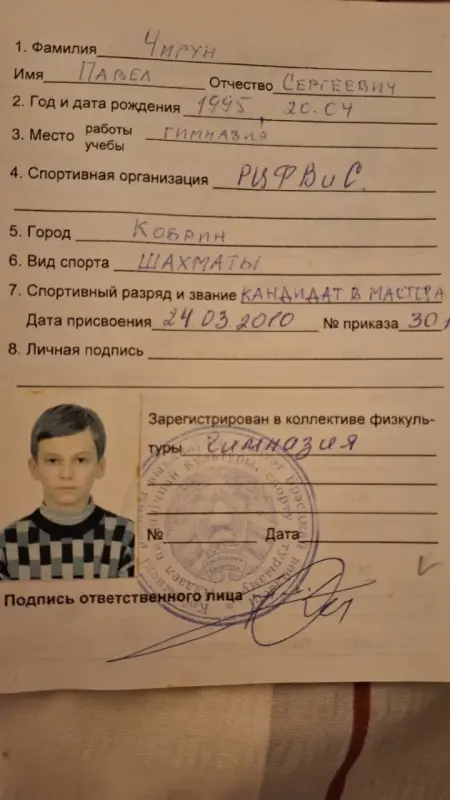 1. Фамилия Чирун
Имя Павел Отчество Сергеевич
2. Год и дата рождения 1995, 20.04
3. Место работы учебы гимназия
4. Спортивная организация РЦФВиС.
5. Город Кобрин
6. Вид спорта ШАХМАТЫ
7. Спортивный разряд и звание КАНДИДАТ В МАСТЕРА
Дата присвоения 24.03.2010 № приказа 30
8. Личная подпись
Зарегистрирован в коллективе физкуль-
туры гимназия
№ Дата
Подпись ответственного лица